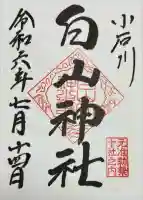 小石川
白山神社
令和六年七月十四日